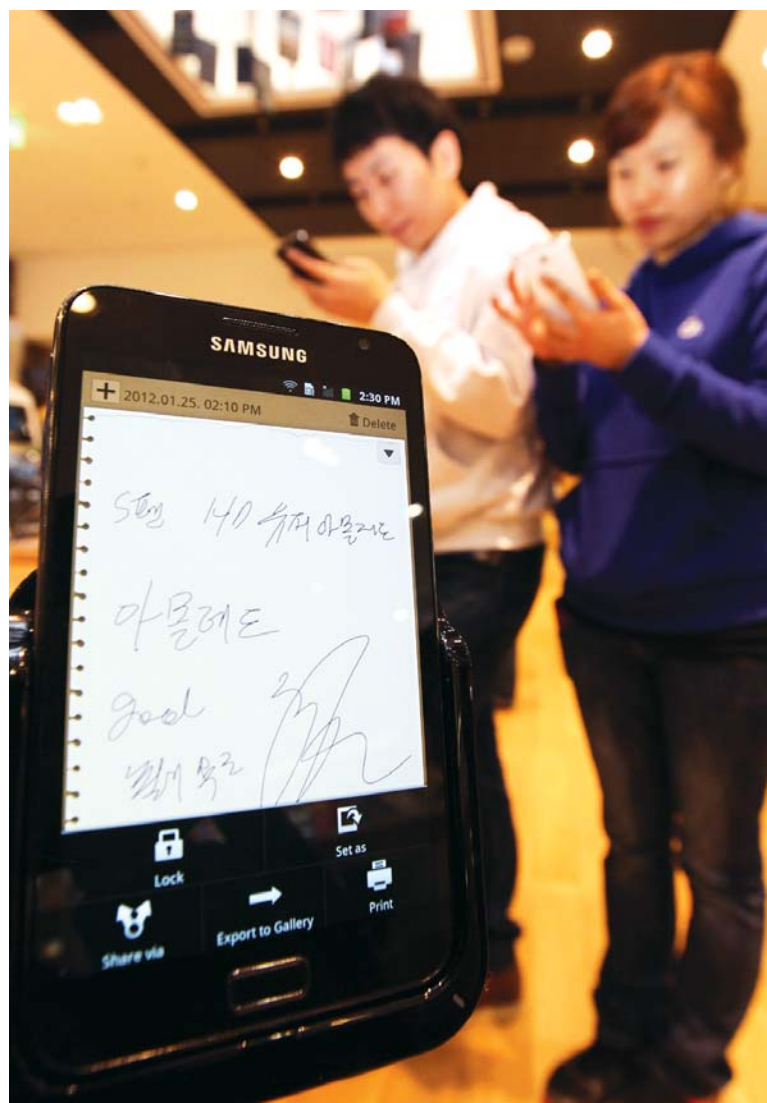 SAMSUNG
2:30 PM
2012.01.25. 02:10 PM
Delete
S펜 HD 슈퍼아몰레드
아몰레드
good
Lock
Set as
Share via
Export to Gallery
Print